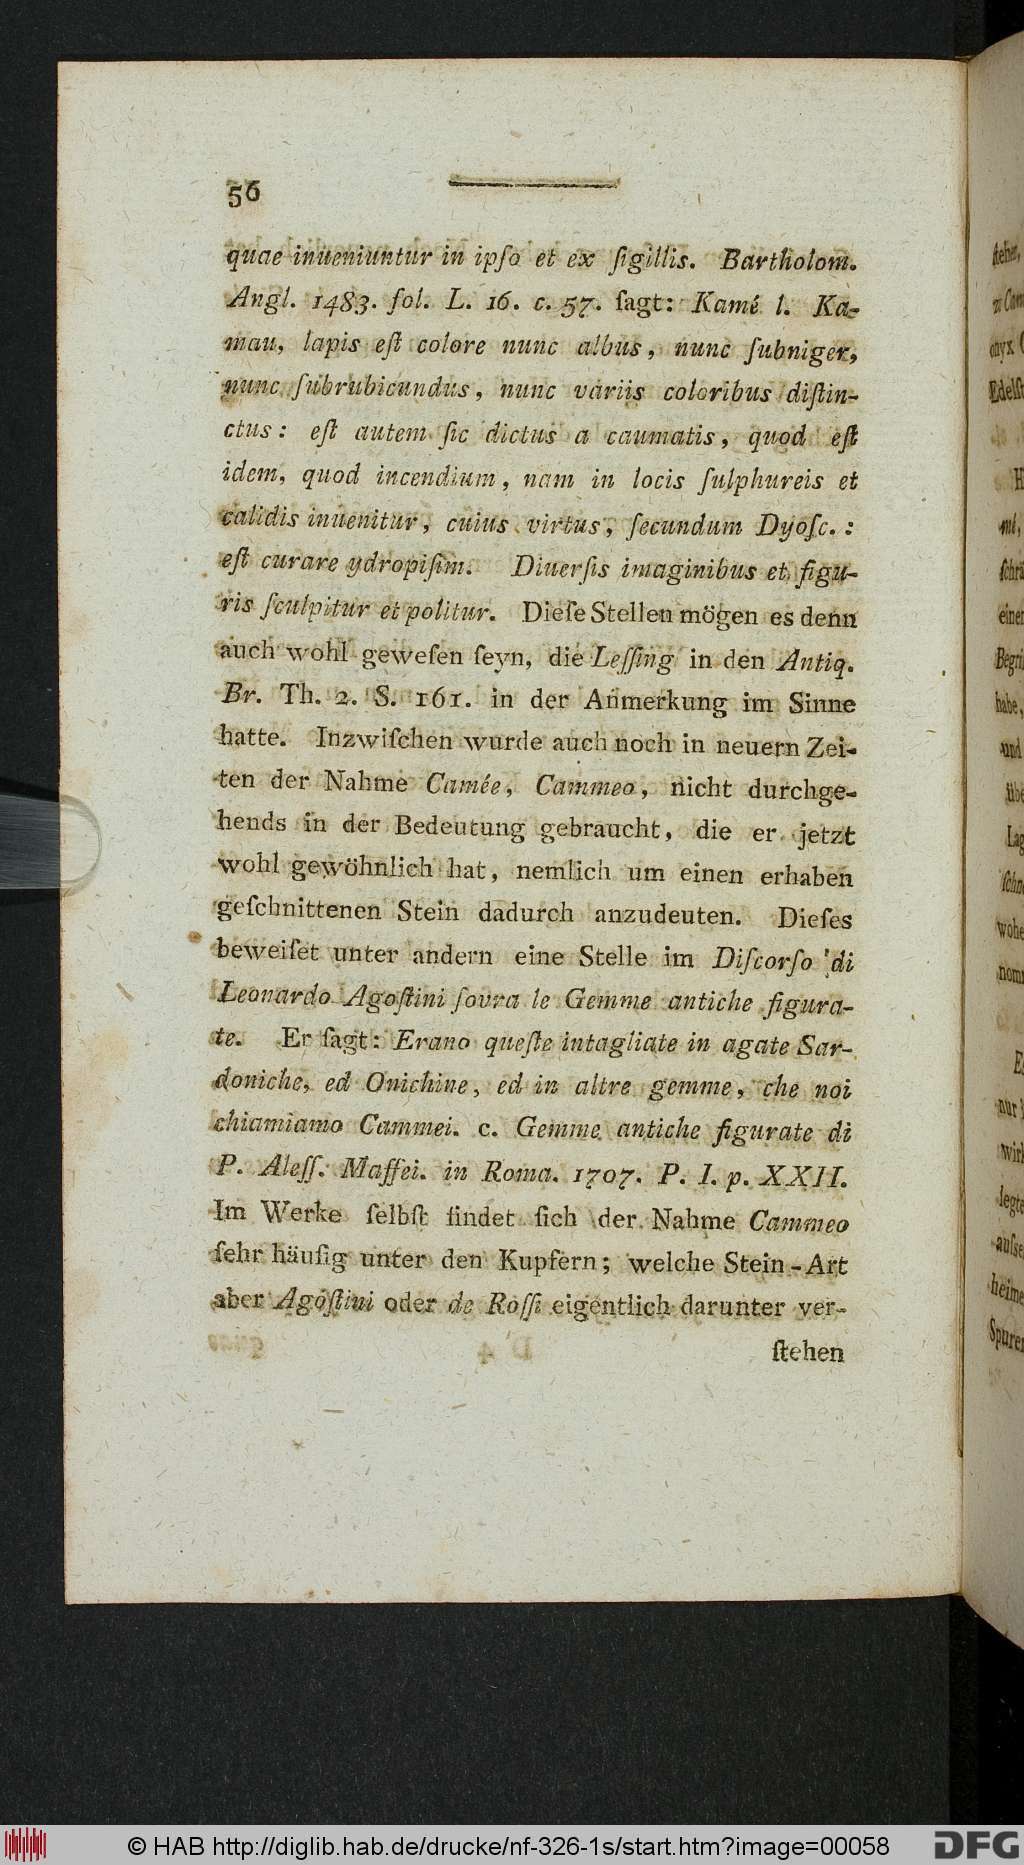 56
quae inueniuntur in ipſo et ex ſigillis. Bartholom.
Angl. 1483. fol. L. 16. c. 57. ſagt: Kamé l. Ka-
mau, lapis eſt colore nunc albus, nunc ſubniger,
nunc ſubrubicundus, nunc variis coloribus diſtin-
ctus: eſt autem ſic dictus a caumatis, quod eſt
idem, quod incendium, nam in locis ſulphureis et
calidis inuenitur, cuius virtus, ſecundum Dyoſc.:
eſt curare ydropiſim. Diuerſis imaginibus et figu-
ris ſculpitur et politur. Dieſe Stellen mögen es denn
auch wohl geweſen ſeyn, die Leſſing in den Antiq.
Br. Th. 2. S. 161. in der Anmerkung im Sinne
hatte. Inzwiſchen wurde auch noch in neuern Zei-
ten der Nahme Camée, Cammeo, nicht durchge-
hends in der Bedeutung gebraucht, die er jetzt
wohl gewöhnlich hat, nemlich um einen erhaben
geſchnittenen Stein dadurch anzudeuten. Dieſes
beweiſet unter andern eine Stelle im Diſcorſo di
Leonardo Agoſtini ſovra le Gemme antiche figura-
te. Er ſagt: Erano queſte intagliate in agate Sar-
doniche, ed Onichine, ed in altre gemme, che noi
chiamiamo Cammei. c. Gemme antiche figurate di
P. Aleſſ. Maffei. in Roma. 1707. P. I. p. XXII.
Im Werke ſelbſt findet ſich der Nahme Cammeo
ſehr häufig unter den Kupfern; welche Stein-Art
aber Agoſtini oder de Roſſi eigentlich darunter ver-
ſtehen
© HAB http://diglib.hab.de/drucke/nf-326-1s/start.htm?image=00058
DFG